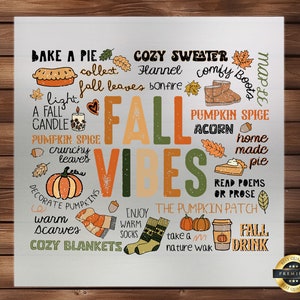 BAKE A PIE
COZY SWEATER
collect
fall leaves
flannel
comfy Boots
MAPLE
bonfire
light
A FALL
CANDLE
FALL
VIBES
PUMPKIN SPICE
ACORN
PUMPKIN SPICE
crunchy
leaves
home
made
pie
DECORATE PUMPKINS
READ POEMS
OR PROSE
THE PUMPKIN PATCH
warm
scarves
ENJOY
WARM
SOCKS
take a
nature walk
FALL
DRINK
COZY BLANKETS
PREMIUM